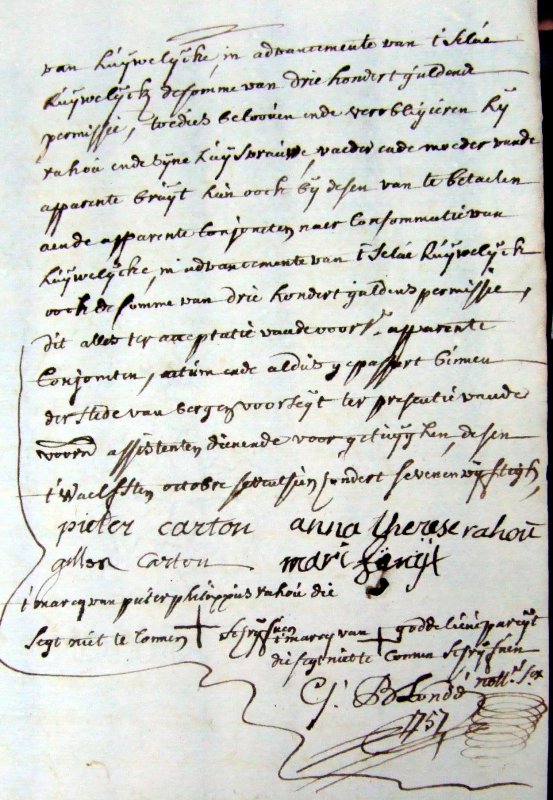 van huÿwelÿcke, in advancemente van t'selve
huÿwelÿck de somme van drie hondert guldens
permissie, toedies belooven ende verobligieren hÿ
rahoú ende sÿne huÿsvrauwe, vaeder ende moeder vande
apparente bruÿt hún ooch bÿ desen van te betaelen
aende apparente Conjoncten naer Consommatie van
huÿwelÿcke, in advancemente van t'selve huÿwelÿck
ooch de somme van drie hondert guldens permissie,
dit alles ter acceptatie vande voors. apparente
Conjoncten, actum ende aldus gepasseert binnen
der stede van bergen voorseÿt ter presentie vande
voorn assistenten dienende voor getuÿghen, desen
t'waelfsten octobre seventhien hondert sevenenvÿftigh,
pieter carton anna therese rahoú
gilles Carton mari
t'marcq van pieter philippus rahoú die
segt niet te Connen schrÿfven
t'marcq van goddelieve pareÿt
die segt niet te Connen schrÿfven
Blonde nott.
1757